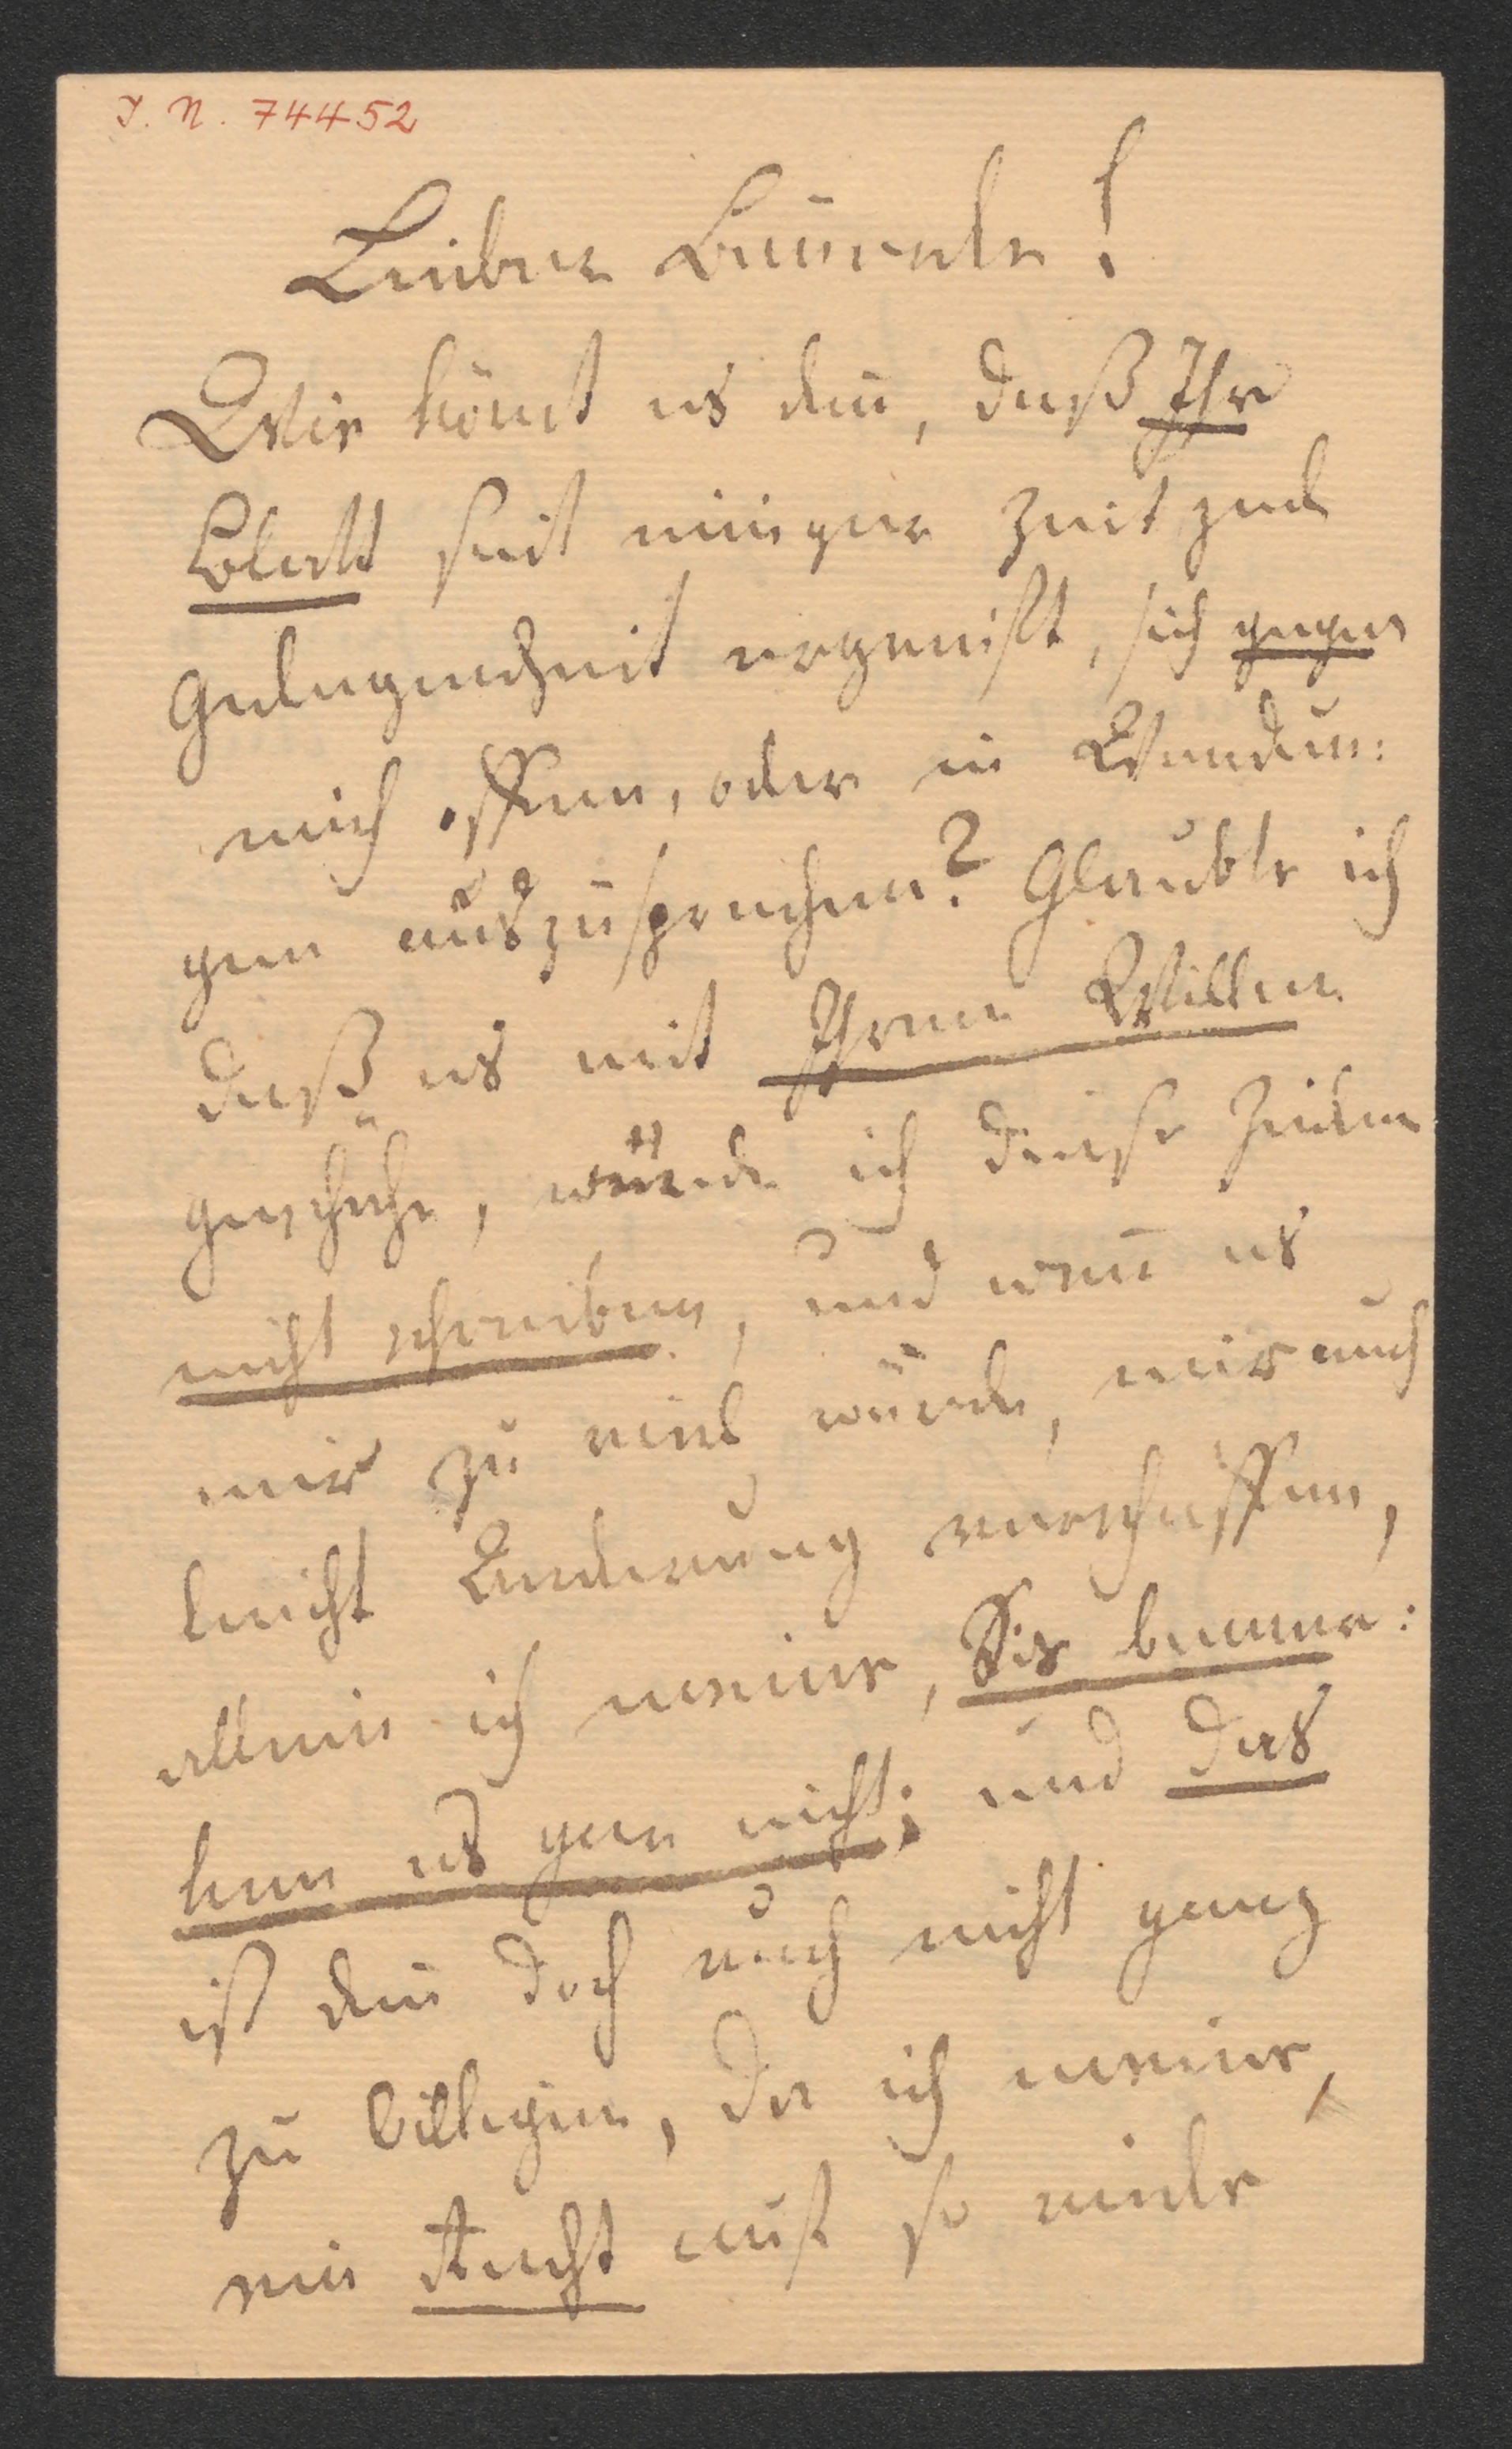 I. N. 74452
Lieber Bäuerle!
Wie kömt es deñ, daß Ihr
Blatt seit einiger Zeit jede
Gelegenheit ergreift, sich gegen
mich offen, oder in Wendun:
gen auszusprechen? Glaubte ich
daß es mit Ihrem Willen
geschehe, würde ich diese Zeilen
nicht schreiben, und weñ es
mir zu viel würde, mir auch
leicht Linderung verschaffen,
allein ich meine, Sie bemer:
ken es gar nicht; und das
ist deñ doch auch nicht ganz
zu billigen, da ich meine,
ein Recht auf so viele